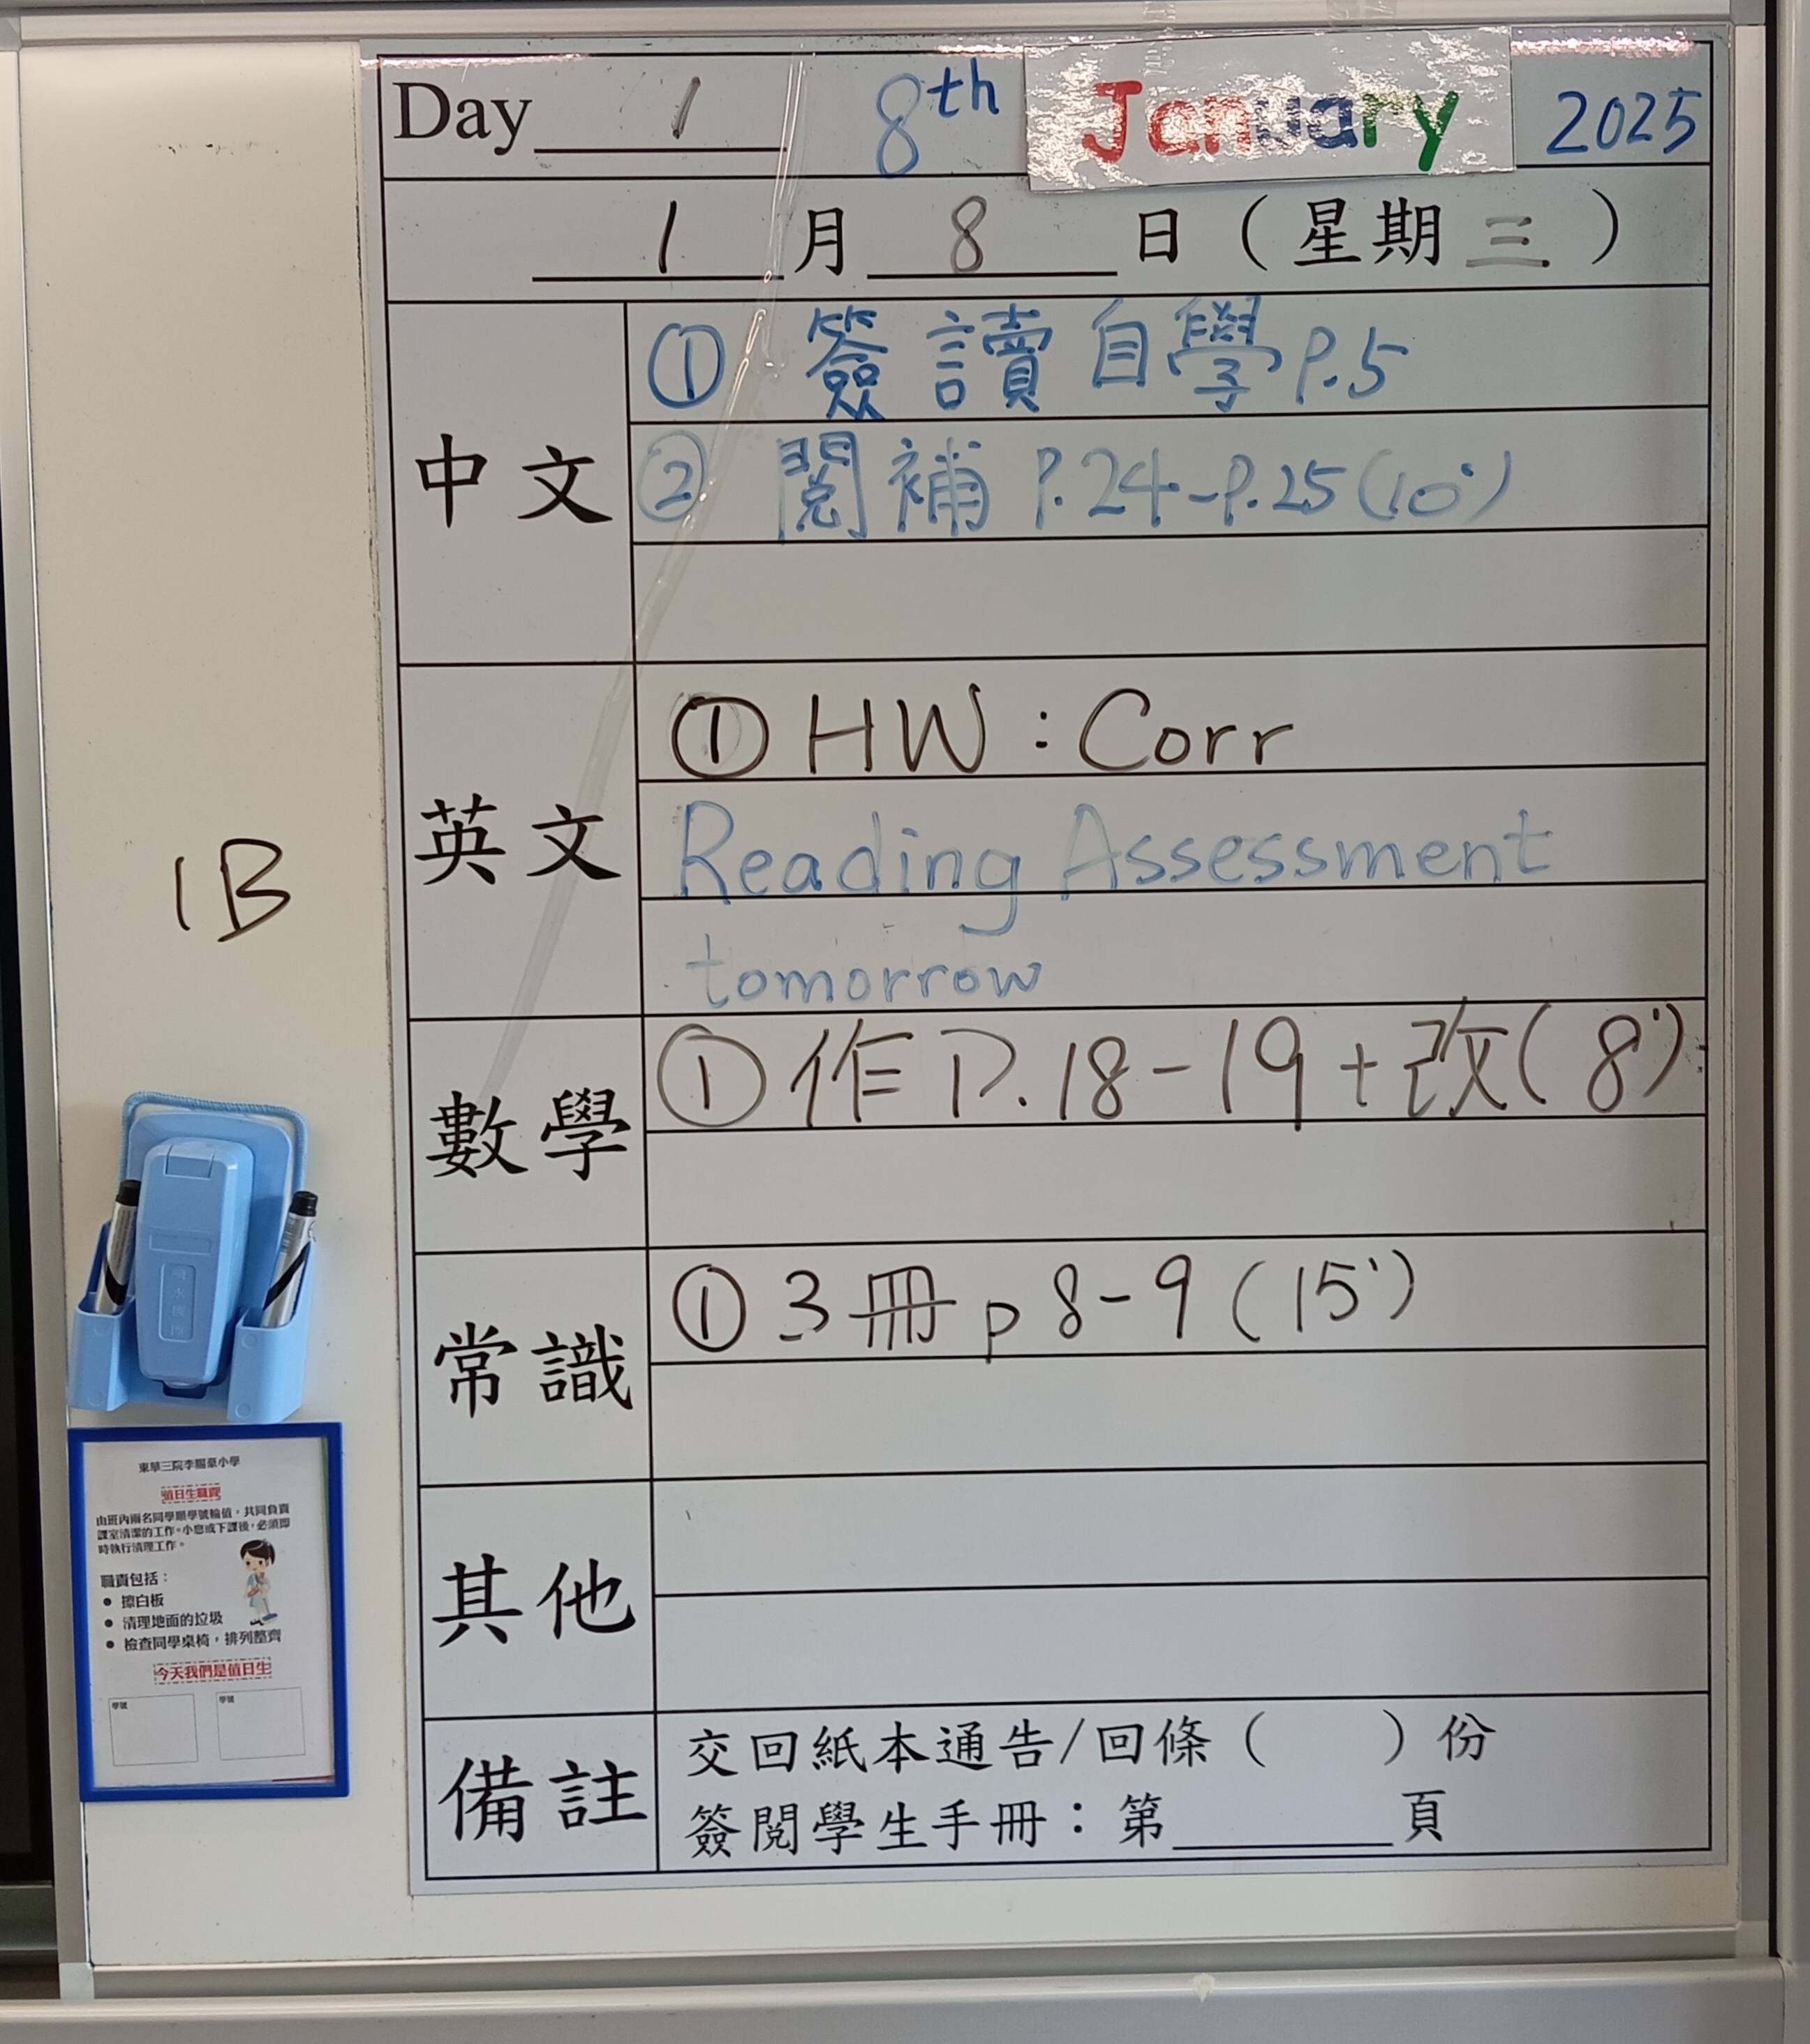 Day 1 8th January 2025
1 月 8 日 ( 星期 三 )
中文
① 簽讀自學 P.5
② 閱補 P.24-P.25 (10')
英文
① HW : Corr
Reading Assessment
tomorrow
數學
① 作 P.18-19 + 改 ( 8')
常識
① 3冊 p 8-9 (15')
其他
備註
交回紙本通告/回條 ( ) 份
簽閱學生手冊：第______頁
1B
東華三院李賜豪小學
值日生職責
由班內兩名同學順學號輪值，共同負責
課室清潔的工作。小息或下課後，必須即
時執行清理工作。
職責包括：
● 擦白板
● 清理地面的垃圾
● 檢查同學桌椅，排列整齊
今天我們是值日生
學號 學號